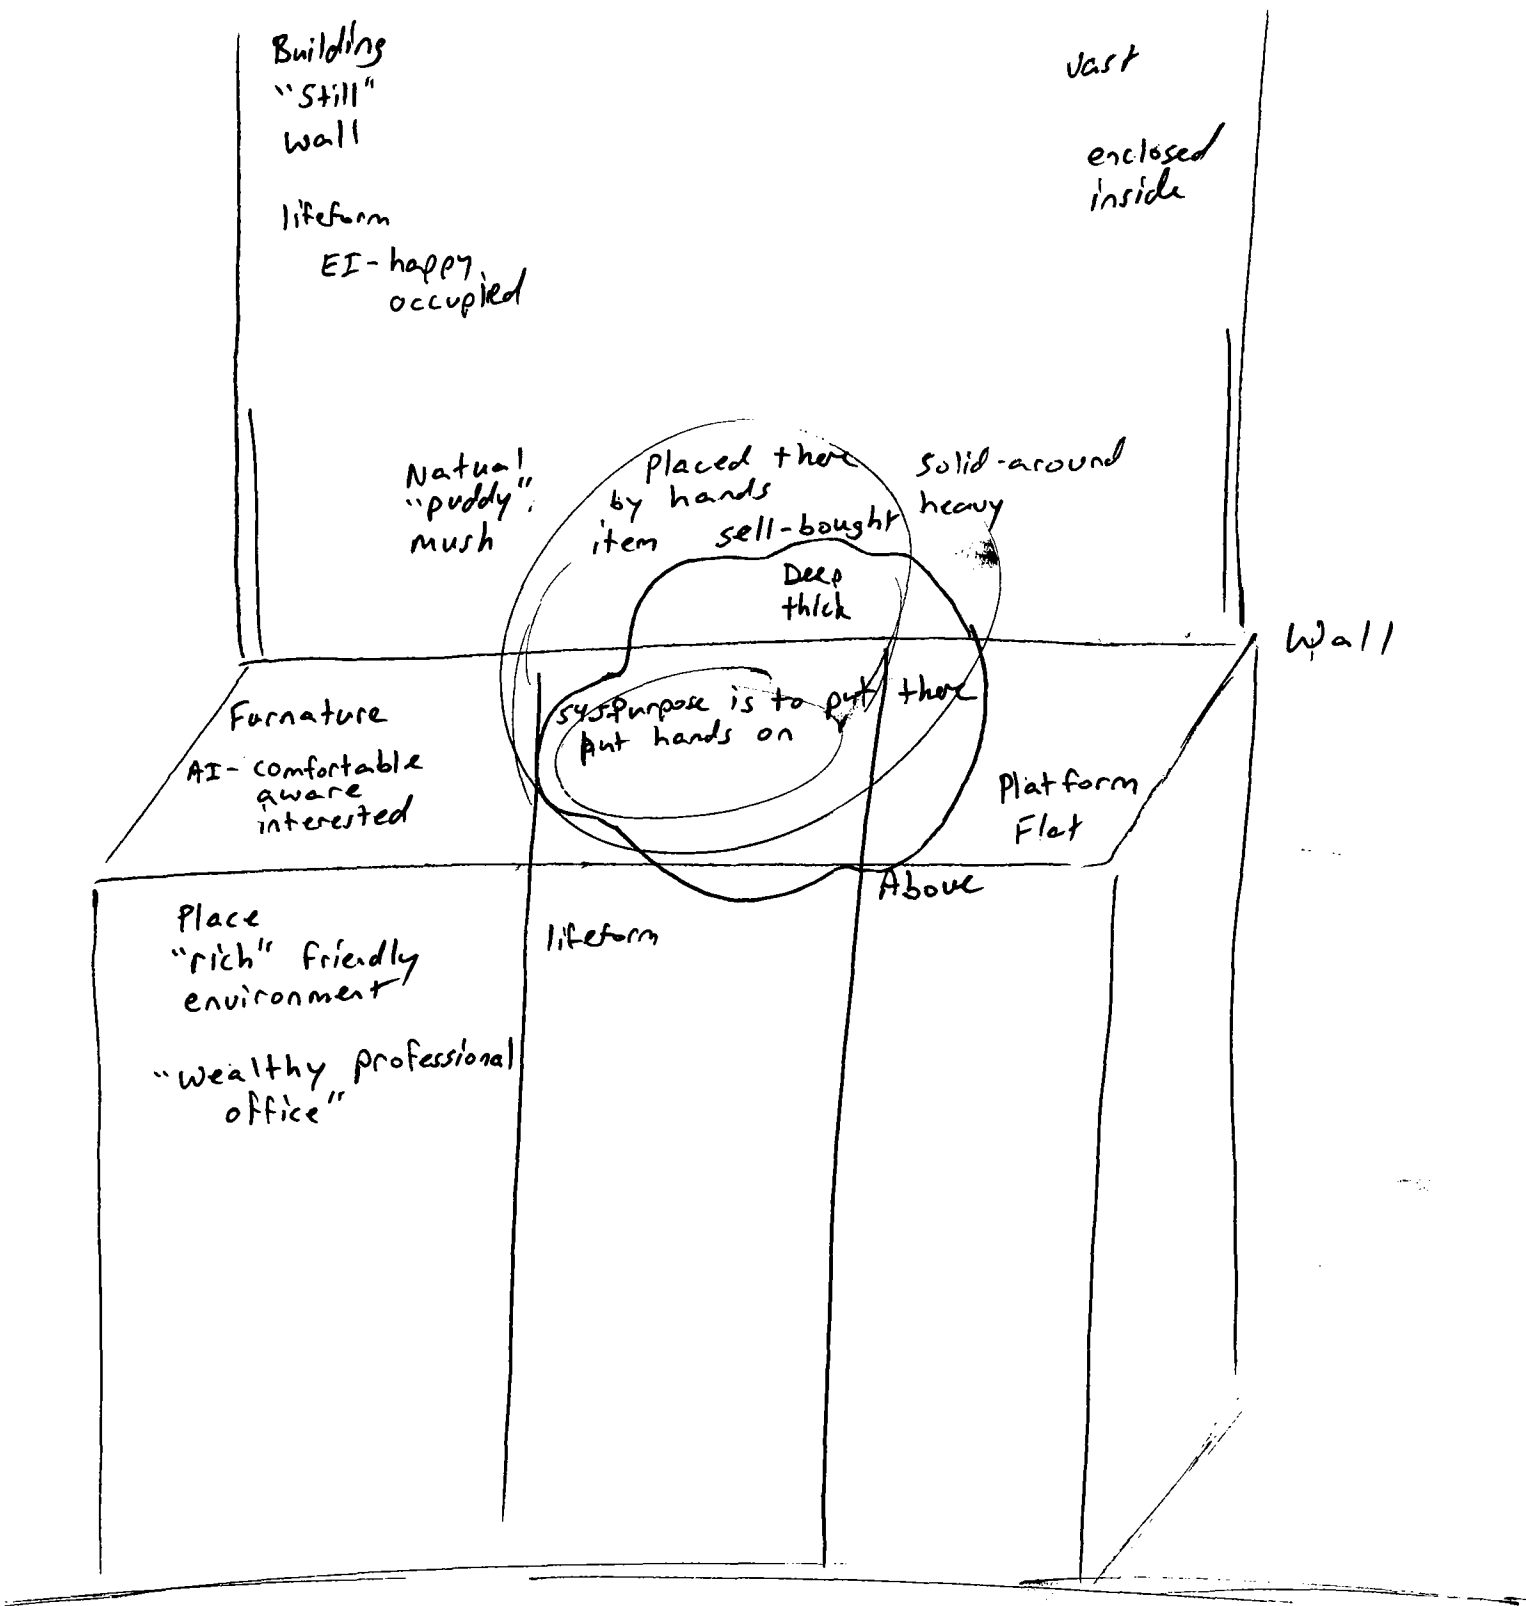 Building
"Still"
wall
lifeform
EI-happy
occupied
vast
enclosed
inside
Natual
"puddy"
mush
Placed there
by hands
item
sell-bought
Solid-around
heavy
Deep
thick
Wall
Furnature
AI-comfortable
aware
interested
Purpose is to put there
put hands on
Platform
Flat
Above
Place
"rich" friendly
environment
lifeform
"wealthy professional
office"